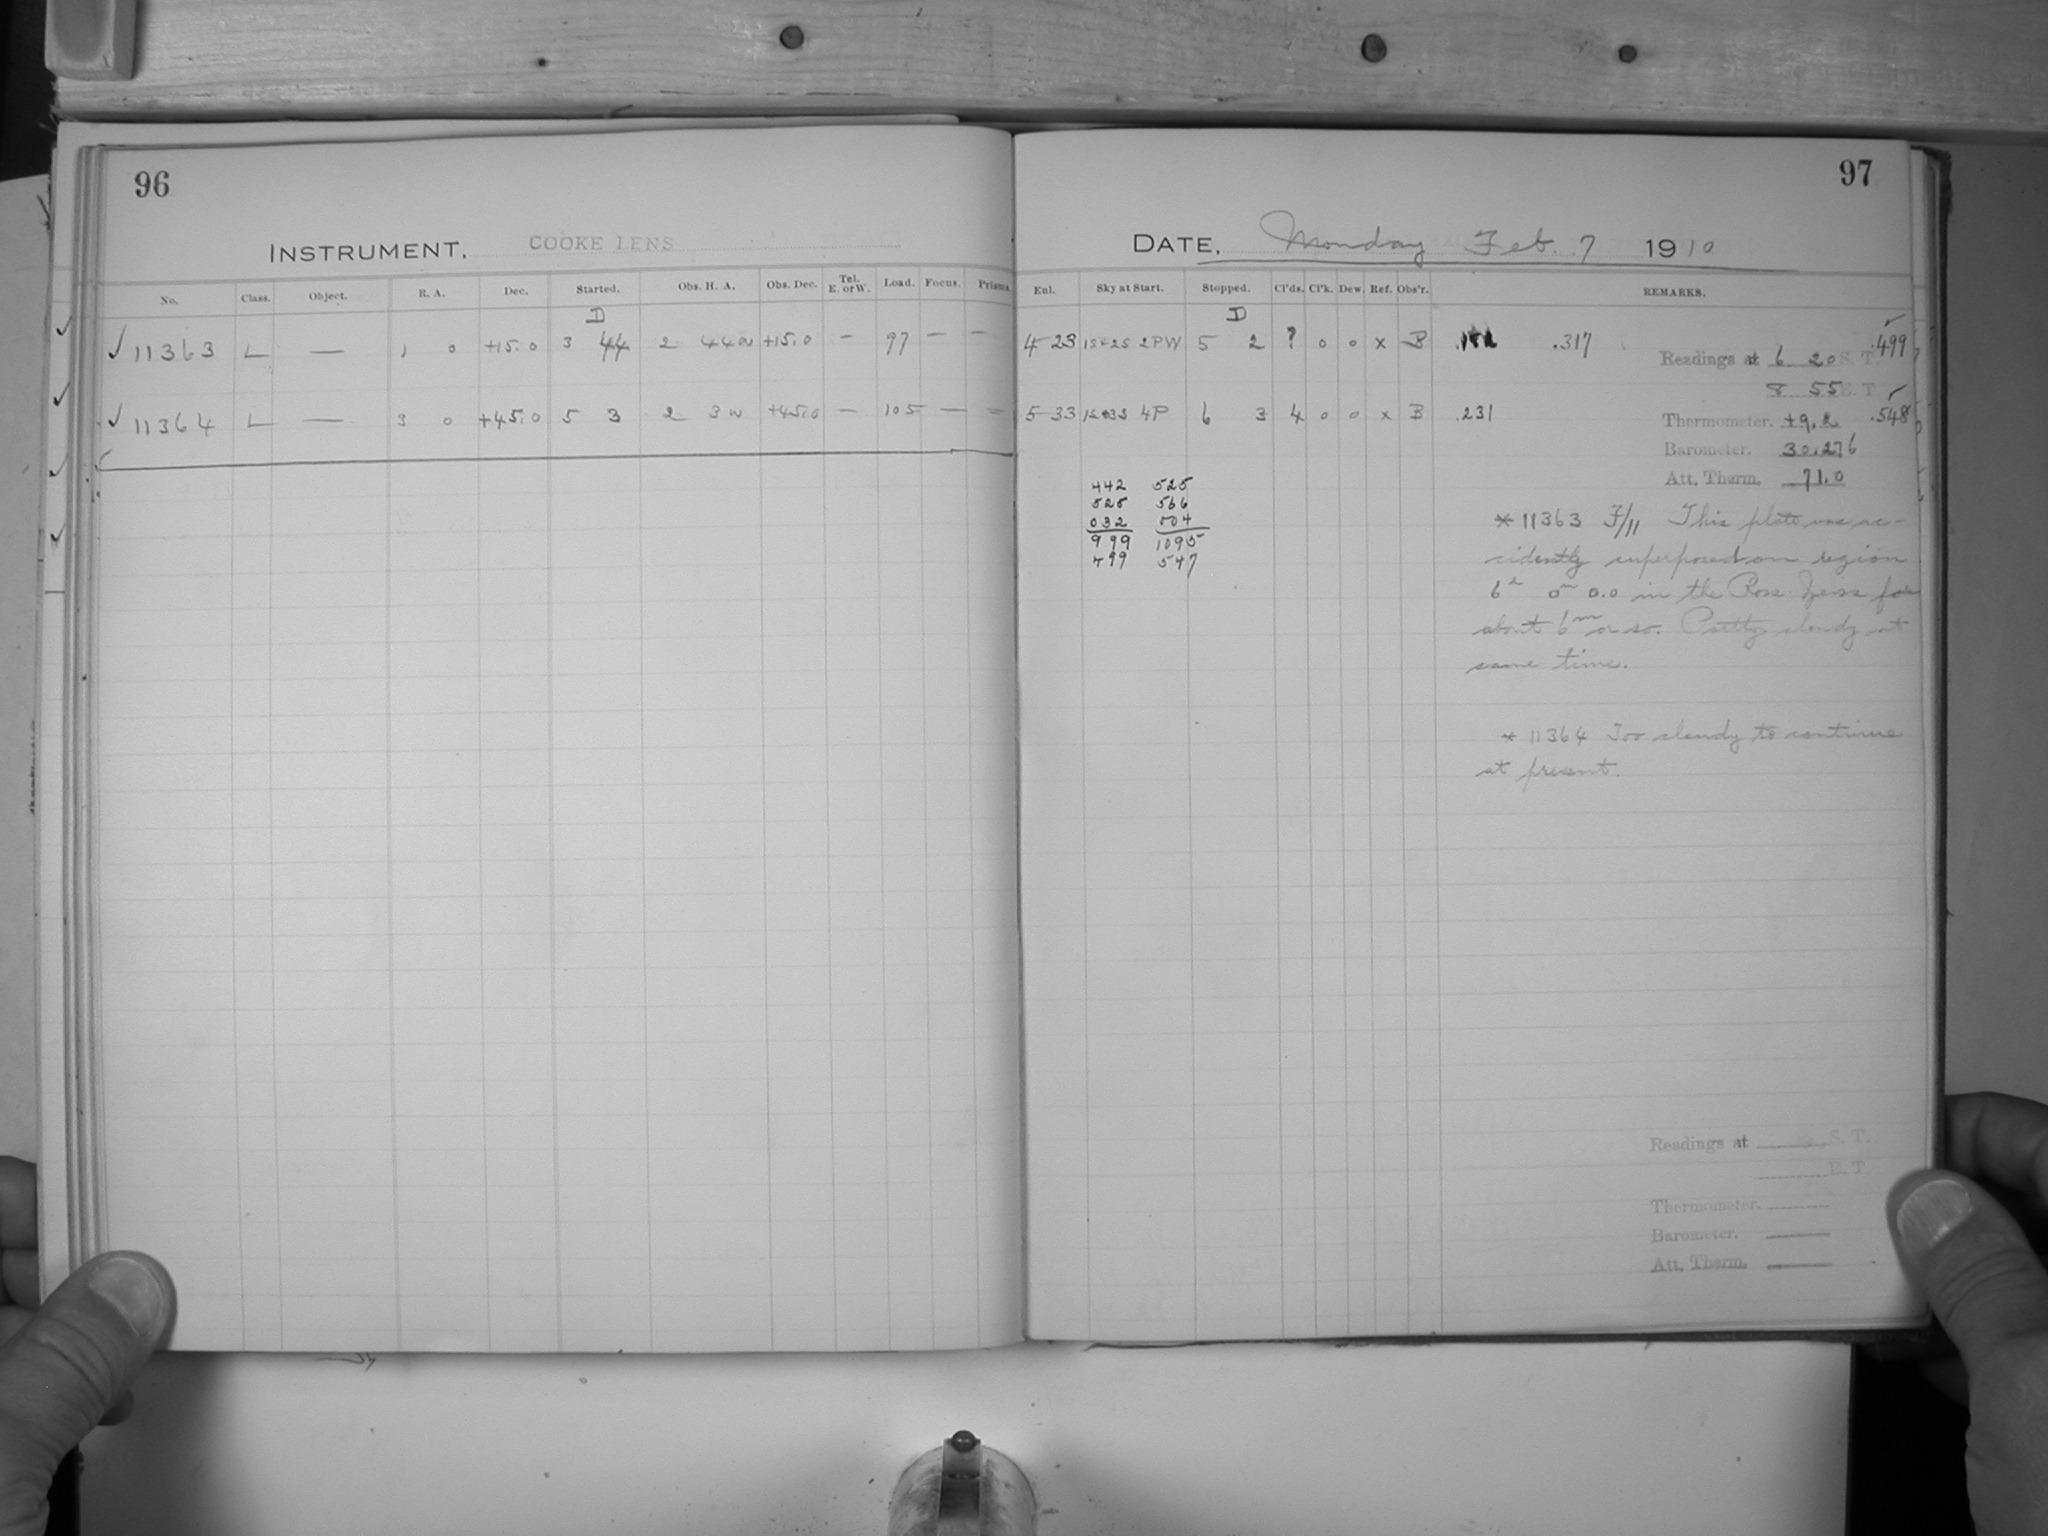 96
INSTRUMENT, COOKE LENS
No. Class. Object. R. A. Dec. Started. Obs. H. A. Obs. Dec. Tel. E. or W. Load. Focus. Prisms.
D
✓ 11363 L — 1 0 +15.0 3 44 2 44 w +15.0 — 97 — —
✓ 11364 L — 3 0 +45.0 5 3 2 3 w +45.0 — 105 — —
97
DATE, Monday Feb. 7 1910
Enl. Sky at Start. Stopped. Cl'ds. Cl'k. Dew. Ref. Obs'r. REMARKS.
D
4 23 1S+2S 2PW 5 2 ? 0 0 x B .317 .499
Readings at 6 20 S. T.
8 55 E. T.
5 33 4P 6 3 4 0 0 x B .231 Thermometer. +9.2 .548
Barometer. 30.276
Att. Therm. 71.0
442 525
525 566
032 004
999 1095
499 547
* 11363 F/11 This plate was ac-
cidently superposed on region
6h 0m 0.0 in the Ross Zeiss for
about 6m or so. Pretty cloudy at
same time.
* 11364 Too cloudy to continue
at present.
Readings at S. T.
E. T.
Thermometer.
Barometer.
Att. Therm.